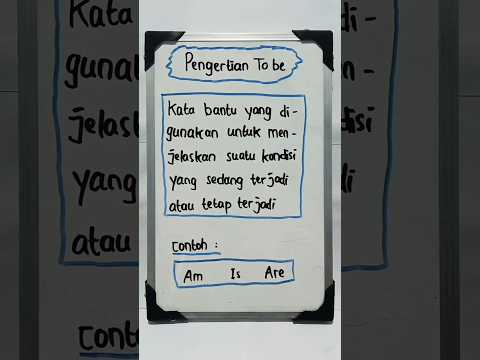 Pengertian To be
Kata bantu yang di-
gunakan untuk men-
jelaskan suatu kondisi
yang sedang terjadi
atau tetap terjadi
Contoh :
Am Is Are